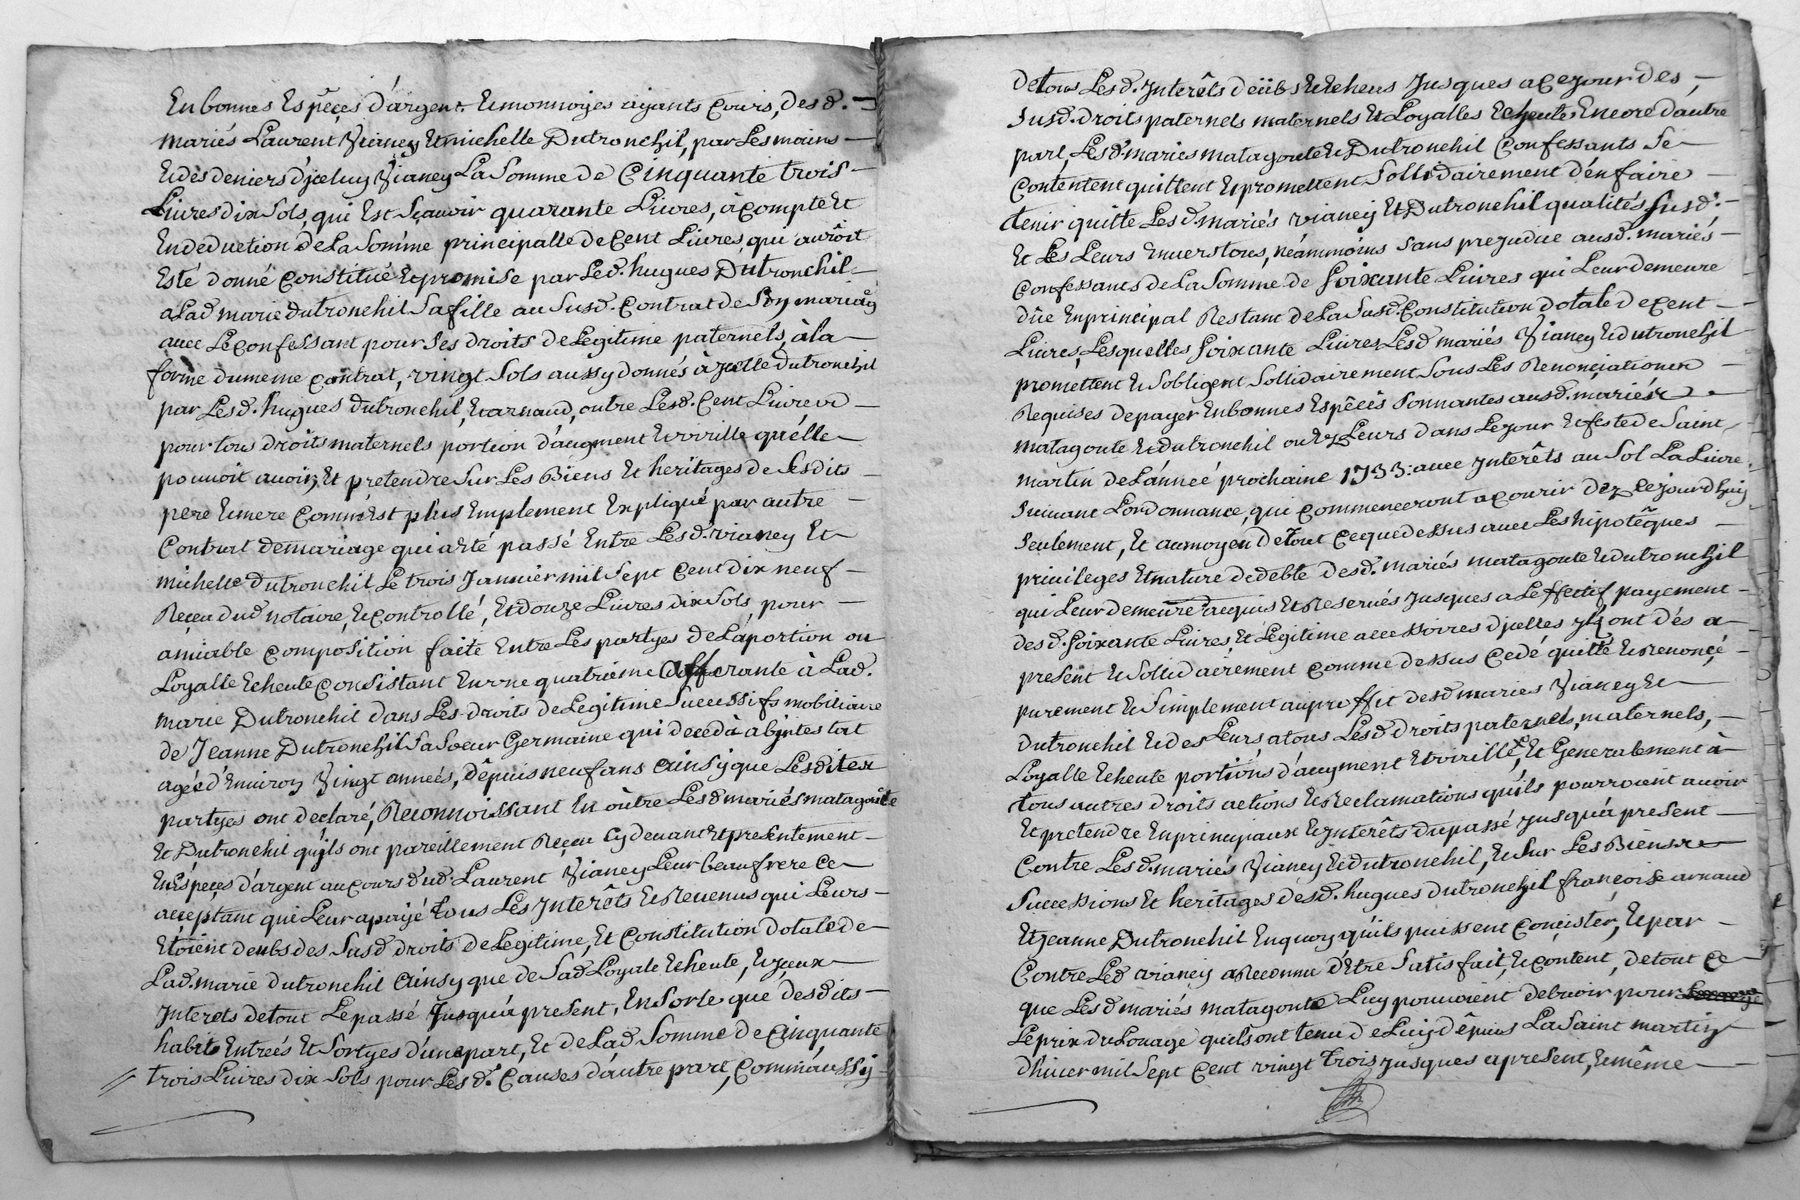 En bonnes Espêçes d'argent Et monnoyes ayants Cours, des d.
mariés Laurent Vianey Et michelle Dutronchil, par Les mains
Et des deniers d'jceluy Vianey La Somme de Cinquante trois
Livres dix Sols, qui Est Sçavoir quarante Livres, à compte Et
En deduction de La Somme principalle de Cent Livres, qui auroit
Esté donné Constitué Et promise par Led. hugues Dutronchil
a Lad. marie Dutronchil Sa fille au Susd. Contrat de Son mariage
avec Le confessant pour Ses droits de Legitime paternels, à la
forme du meme contrat, vingt Sols aussy donnés à jcelle Dutronchil
par Lesd. hugues dutronchil, Et arnaud, outre Lesd. Cent Livres
pour tous droits maternels portion d'augment Et virille qu'elle
pouvoit avoir Et pretendre Sur Les Biens Et heritages de Sesdits
pere Et mere Comm'Est plus Emplement Expliqué par autre
Contrat de mariage qui a Eté passé Entre Lesd. vianey Et
michelle dutronchil Le trois Janvier mil Sept Cent dix neuf
Reçeu dud notaire, Et controllé, Et douze Livres dix Sols, pour
amiable composition faite Entre Les partyes de La portion ou
Loyalle Echeute Consistant En une quatrieme afferante à Lad.
marie Dutronchil dans Les droits de Legitime Successifs mobiliaire
de Jeanne Dutronchil Sa Soeur Germaine qui deceda abjntestat
agéé d'Environ Vingt années, dêpuis neuf ans ainsy que Lesdites
partyes ont declaré, Reconnoissant En oûtre Lesd mariés matagoute
Et Dutronchil qu'jls ont pareillement Reçeu Cy devant Et presentement
En Espeçes d'argent au cours dud. Laurent Vianey Leur beaufrere Ce
acceptant qui Leur a payé tous Les jnterêts Et Revenus qui Leurs
Etoient deubs des Susd droits de Legitime, Et Constitution dotale de
Lad. marie dutronchil ainsy que de Sad Loyale Echeute, Et yceux
jnterets de tout Le passé jusqu'a present, En Sorte que desdits
habits Entreés Et Sortyes d'une part, Et de Lad. Somme de Cinquante
trois Livres dix Sols pour Les d. Causes d'autre part, Comm'aussy
de tous Lesd. jnterêts deübs Et Echeus jusques a Ce jour des
Susd. droits paternels maternels Et Loyalles Echeutes Encore d'autre
part, Lesd. mariés matagoute Et Dutronchil Confessants Se
Contentent quittent Et promettent Sollidairement d'en faire
tenir quitte Lesd. mariés vianey Et Dutronchil qualités Susd.
Et Les Leurs Envers tous, neammoins Sans prejudice aud. mariés
Confessants de La Somme de Soixante Livres qui Leur demeure
düe En principal Restant de La Susd. Constitution dotale de Cent
Livres, Lesquelles Soixante Livres Lesd mariés Vianey Et dutronchil
promettent Et Sobligent Sollidairement Sous Les Renonciations
Requises de payer En bonnes Espêçes Sonnantes ausd. mariés
matagoute Et dutronchil ou Ez Leurs dans Le jour Et feste de Saint
martin de L'année prochaine 1733: avec jnterêts au Sol La Livre
Suivant L'ordonnance, qui commenceront a courir dez ce jourdhuy
Seulement, Et au moyen de Tout Ce que dessus avec Les hipotêques
privileges Et nature de debte desd. mariés matagoute Et dutronchil
qui Leur demeure acquis Et Reservés jusques a L'effectif payement
desd. Soixante Livres, Et Legitime accessoires d'jcelles jls ont dés a
present Et Sollidairement Comme dessus Cedé quitté Et Renoncé
purement Et Simplement au proffit desd maries Vianey Et
Dutronchil Et des Leurs a tous Lesd droits paternels, maternels,
Loyalle Echeute portions d'augment Et virille, Et Generalement à
tous autres droits actions Et Reclamations qu'ils pourroient avoir
Et pretendre En principaux Et jnterêts du passé jusqu'a present
Contre Lesd. mariés Vianey Et dutronchil, Et Sur Les Biens
Successions Et heritages desd. hugues dutronchil françoise arnaud
Et jeanne Dutronchil En quoy qu'ils puissent Concister, Et par
Contre Led vianey a Reconnu d'Etre Satisfait, Et content, de tout Ce
que Lesd mariés matagoute Luy pouvoient debvoir pour
Le prix du Louage qu'ils ont tenu de Luy dêpuis La Saint martin
d'hiver mil Sept Cent vingt trois jusques a present, Et même